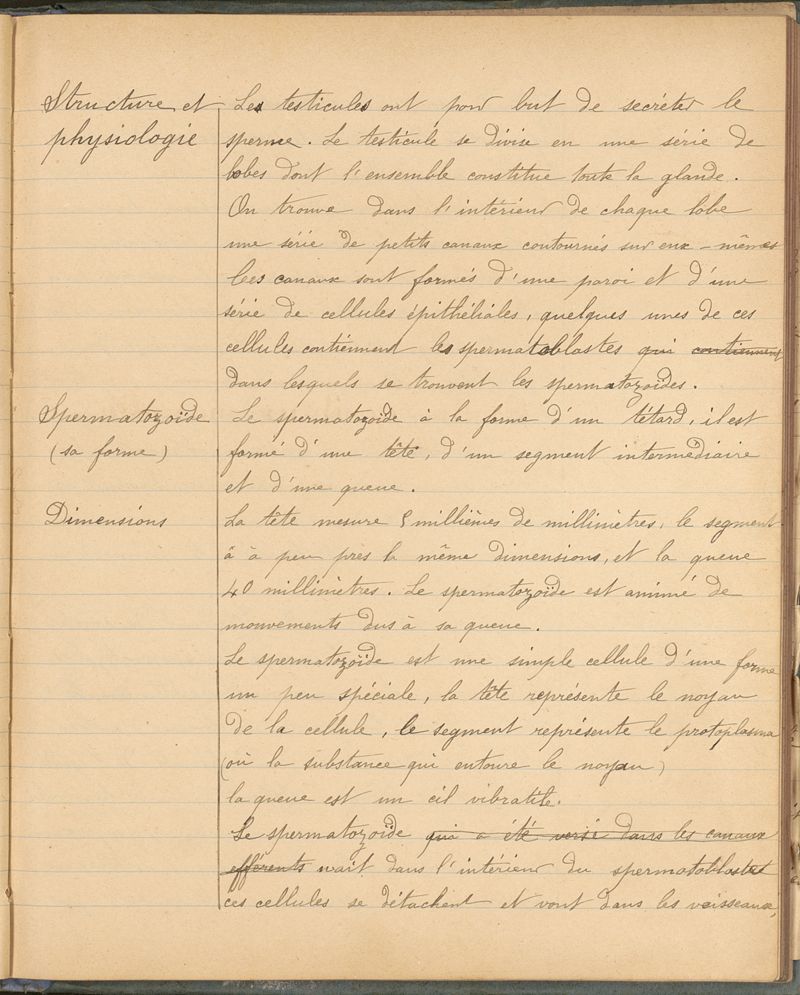 Structure et
physiologie
Les testicules ont pour but de secréter le
sperme. Le testicule se divise en une série de
lobes dont l'ensemble constitue toute la glande.
On trouve dans l'intérieur de chaque lobe
une série de petits canaux contournés sur eux-mêmes
Ces canaux sont formés d'une paroi et d'une
série de cellules épithéliales, quelques unes de ces
cellules contiennent les spermatoblastes qui contiennent
dans lesquels se trouvent les spermatozoïdes.
Spermatozoïde
(sa forme)
Le spermatozoïde à la forme d'un têtard, il est
formé d'une tête, d'un segment intermédiaire
et d'une queue.
Dimensions
La tête mesure 5 millièmes de millimètres, le segment
à à peu près la même dimensions, et la queue
40 millimètres. Le spermatozoïde est animé de
mouvements dus à sa queue.
Le spermatozoïde est une simple cellule d'une forme
un peu spéciale, la tête représente le noyau
de la cellule, le segment représente le protoplasma
(où la substance qui entoure le noyau)
la queue est un cil vibratile.
Le spermatozoïde qui a été versé dans les canaux
efférents nait dans l'intérieur du spermatoblastes
ces cellules se détachent et vont dans les vaisseaux,